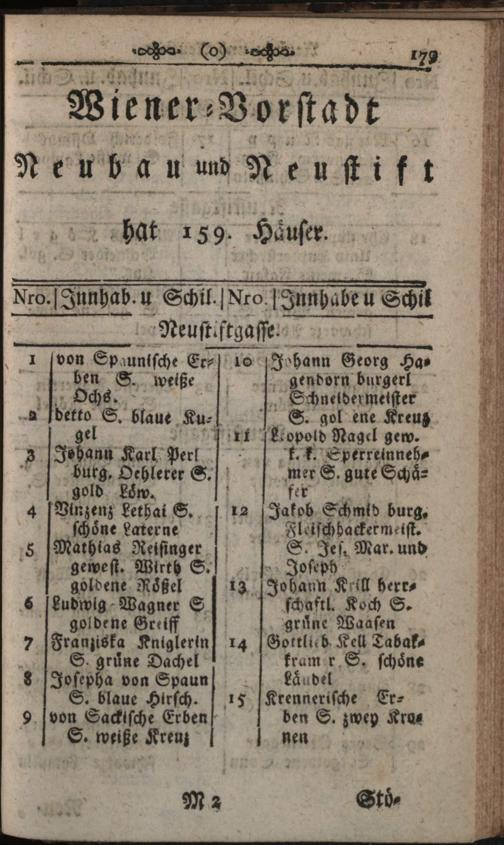 (o) 179
Wiener-Vorstadt
Neubau und Neustift
hat 159. Häuser.
Nro. Innhab. u Schil. Nro. Innhabe u Schil
Neustiftgasse.
1 von Spaunische Er-
ben S. weiße
Ochs.
2 detto S. blaue Ku-
gel
3 Johann Karl Perl
burg. Oehlerer S.
gold Löw.
4 Vinzenz Lethai S.
schöne Laterne
5 Mathias Reisinger
gewest. Wirth S.
goldene Rößel
6 Ludwig Wagner S
goldene Greiff
7 Franziska Kniglerin
S. grüne Dachel
8 Josepha von Spaun
S. blaue Hirsch.
9 von Sackische Erben
S. weiße Kreuz
10 Johann Georg Ha-
gendorn burgerl
Schneidermeister
S. gol ene Kreuz
11 Leopold Nagel gew.
k. k. Sperreinneh-
mer S. gute Schä-
fer
12 Jakob Schmid burg.
Fleischhackermeist.
S. Jes. Mar. und
Joseph
13 Johann Krill herr-
schaftl. Koch S.
grüne Waasen
14 Gottlieb Kell Tabak-
kram r S. schöne
Ländel
15 Krennerische Er-
ben S. zwey Kro-
nen
M 2 Stö-